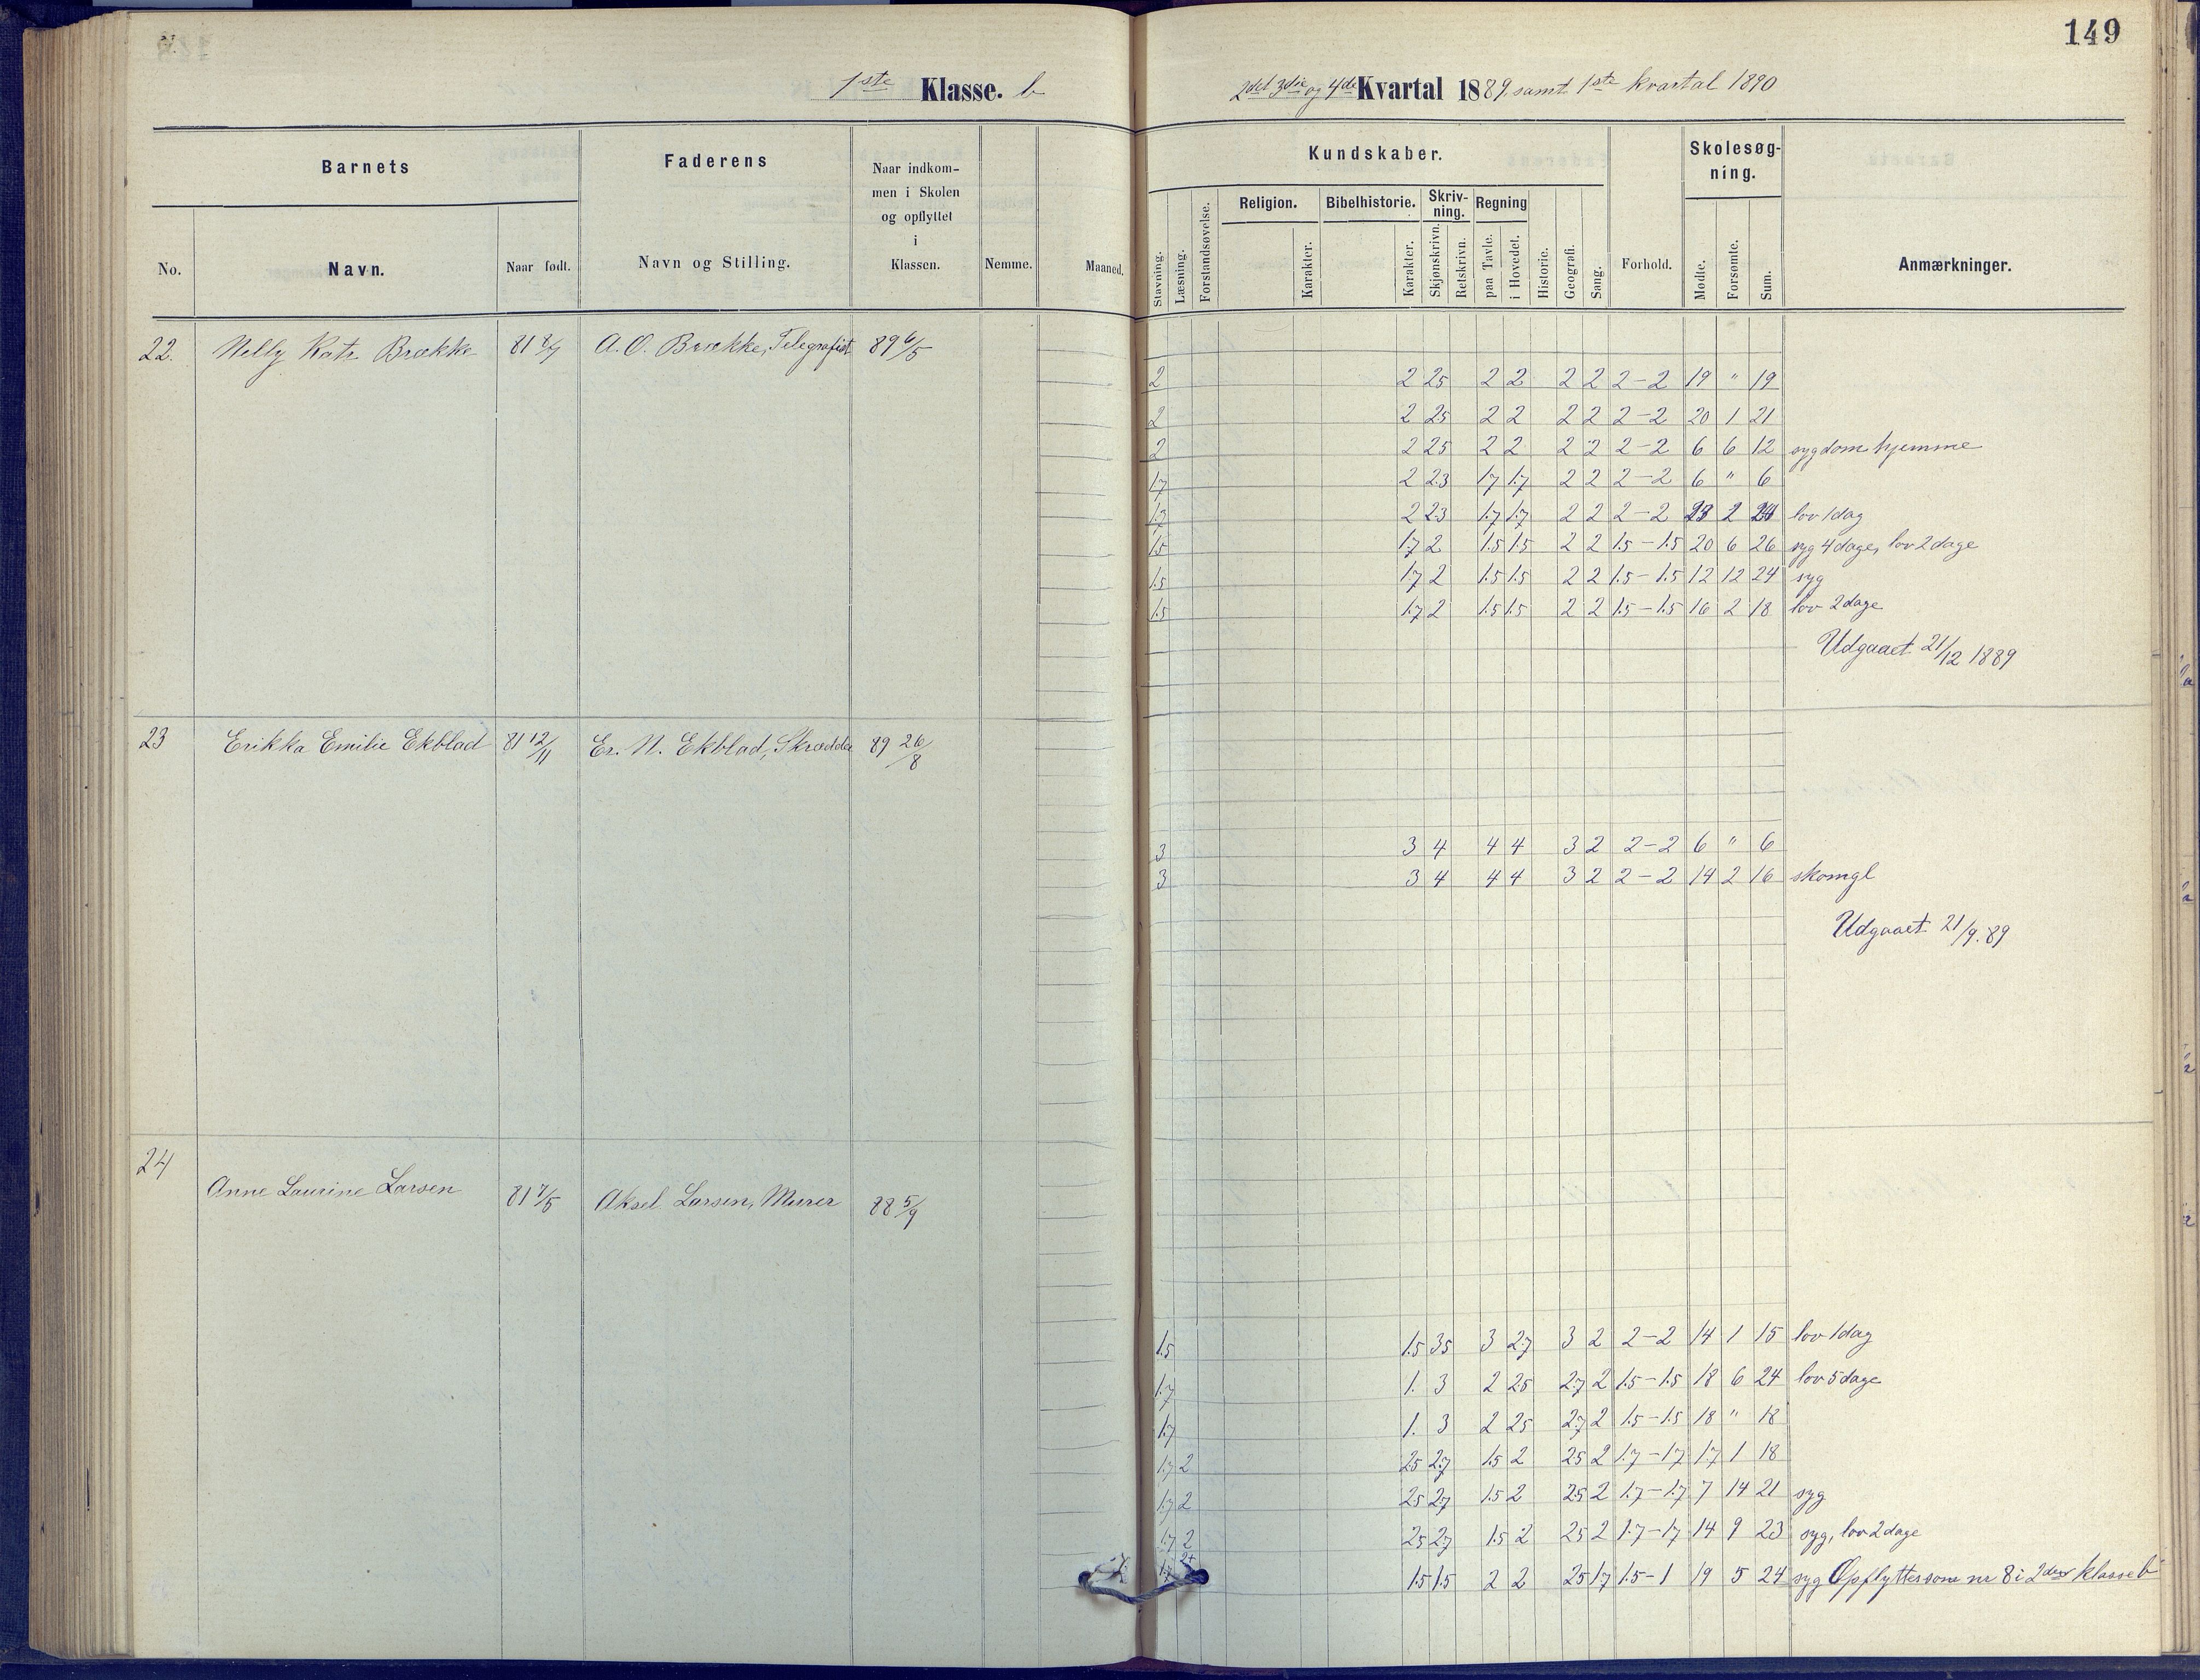 149
1ste Klasse. b
2det 3die og 4de Kvartal 1889. samt 1ste kvartal 1890
Barnets
Faderens
Naar indkom-
men i Skolen
og opflyttet
i
Klassen.
No.
Navn.
Naar født.
Navn og Stilling.
Nemme.
Maaned.
Kundskaber.
Skolesøg-
ning.
Stavning.
Læsning.
Forstandsøvelse.
Religion.
Karakter.
Bibelhistorie.
Karakter.
Skriv-
ning.
Skjønskrivn.
Retskrivn.
Regning
paa Tavle.
i Hovedet.
Historie.
Geografi.
Sang.
Forhold.
Mødte.
Forsømte.
Sum.
Anmærkninger.
22. Nelly Katr. Brække 81 8/7 A. O. Brække, Telegrafist 89 6/5
2 2 25 2 2 2 2 2-2 19 " 19
2 2 25 2 2 2 2 2-2 20 1 21
2 2 25 2 2 2 2 2-2 6 6 12 sygdom hjemme
1.7 2 2.3 1.7 1.7 2 2 2-2 6 " 6
1.7 2 2.3 1.7 1.7 2 2 2-2 2 lov 1 dag
1.5 1.7 2 1.5 1.5 2 2 1.5-1.5 20 6 26 syg 4 dage, lov 2 dage
1.5 1.7 2 1.5 1.5 2 2 1.5-1.5 12 12 24 syg
1.5 1.7 2 1.5 1.5 2 2 1.5-1.5 16 2 18 lov 2 dage
Udgaaet 21/12 1889
23 Erikka Emilie Ekblad 81 12/11 Er. N. Ekblad, Skrædder 89 26/8
3 3 4 4 4 3 2 2-2 6 " 6
3 3 4 4 4 3 2 2-2 14 2 16 skomgl
Udgaaet 21/9. 89
24 Anne Laurine Larsen 81 7/5 Aksel Larsen, Murer 88 5/9
1.5 1.5 35 3 2.7 3 2 2-2 14 1 15 lov 1 dag
1.7 1. 3 2 25 2.7 2 1.5-1.5 18 6 24 lov 5 dage
1.7 1. 3 2 25 2.7 2 1.5-1.5 18 " 18
1.7 2 25 2.7 1.5 2 25 2 1.7-1.7 17 1 18
1.7 2 25 2.7 1.5 2 25 2 1.7-1.7 7 14 21 syg
1.7 2 25 2.7 1.5 2 25 2 1.7-1.7 14 9 23 syg, lov 2 dage
1.7 2+ 1.5 1.5 2 2 25 1.7 1.5-1 19 5 24 syg Opflyttes som nr 8 i 2den klasse b